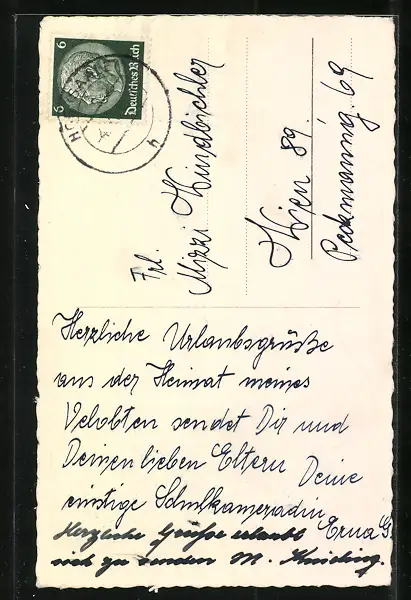 6
Deutsches Reich
6
Frl.
Mizzi Windbichler
Wien 89.
69
Herzliche Urlaubsgrüße
aus der Heimat meines
Velobten sendet Dir und
Deinen lieben Eltern Deine
einstige Schulkameradin
Erna G.
Herzliche Grüße erlaubt
sich zu senden M.